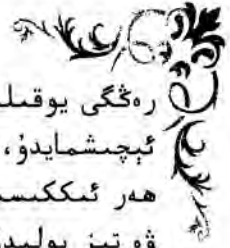 رەڭگى يوقىلـ
ئېچىشمايدۇ،
ھەر ئىككىسـ
ۋە تىز بولىدۇ